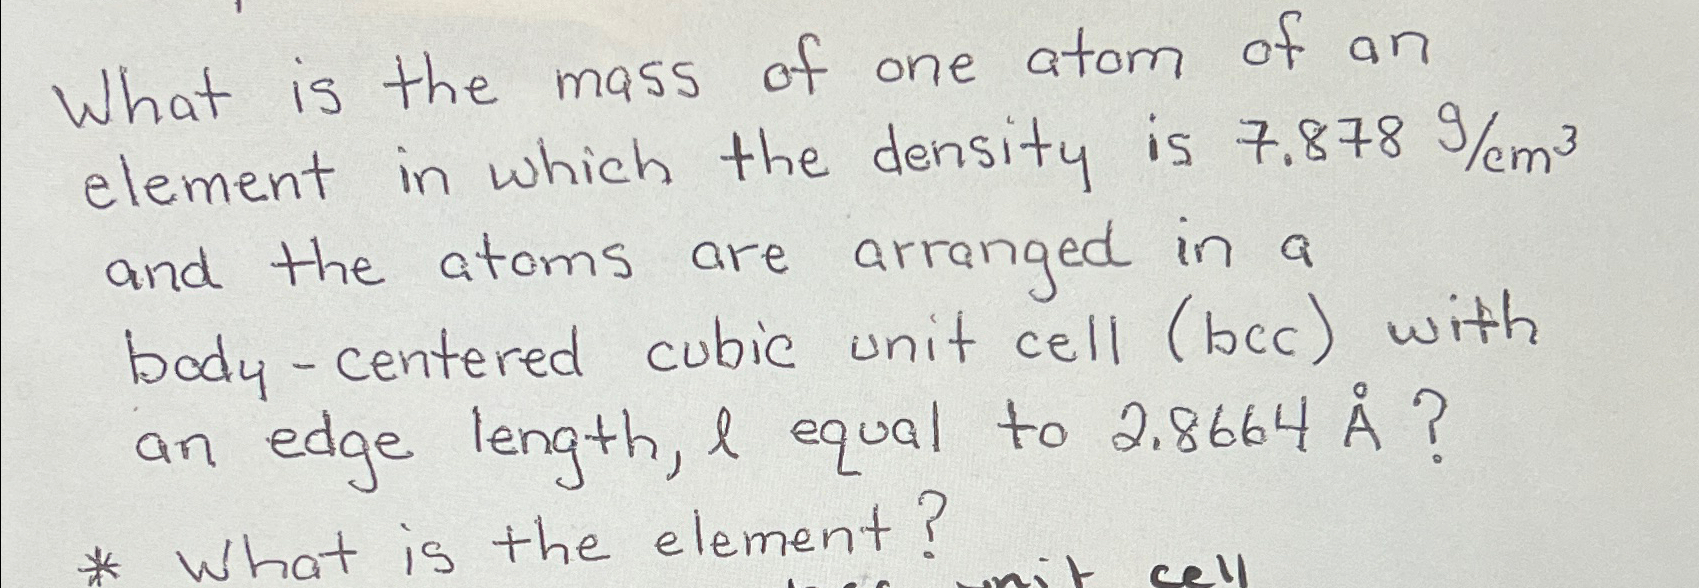 What is the mass of one atom of an
element in which the density is 7.878 g/cm³
and the atoms are arranged in a
body-centered cubic unit cell (bcc) with
an edge length, l equal to 2.8664 Å?
* What is the element?
unit cell